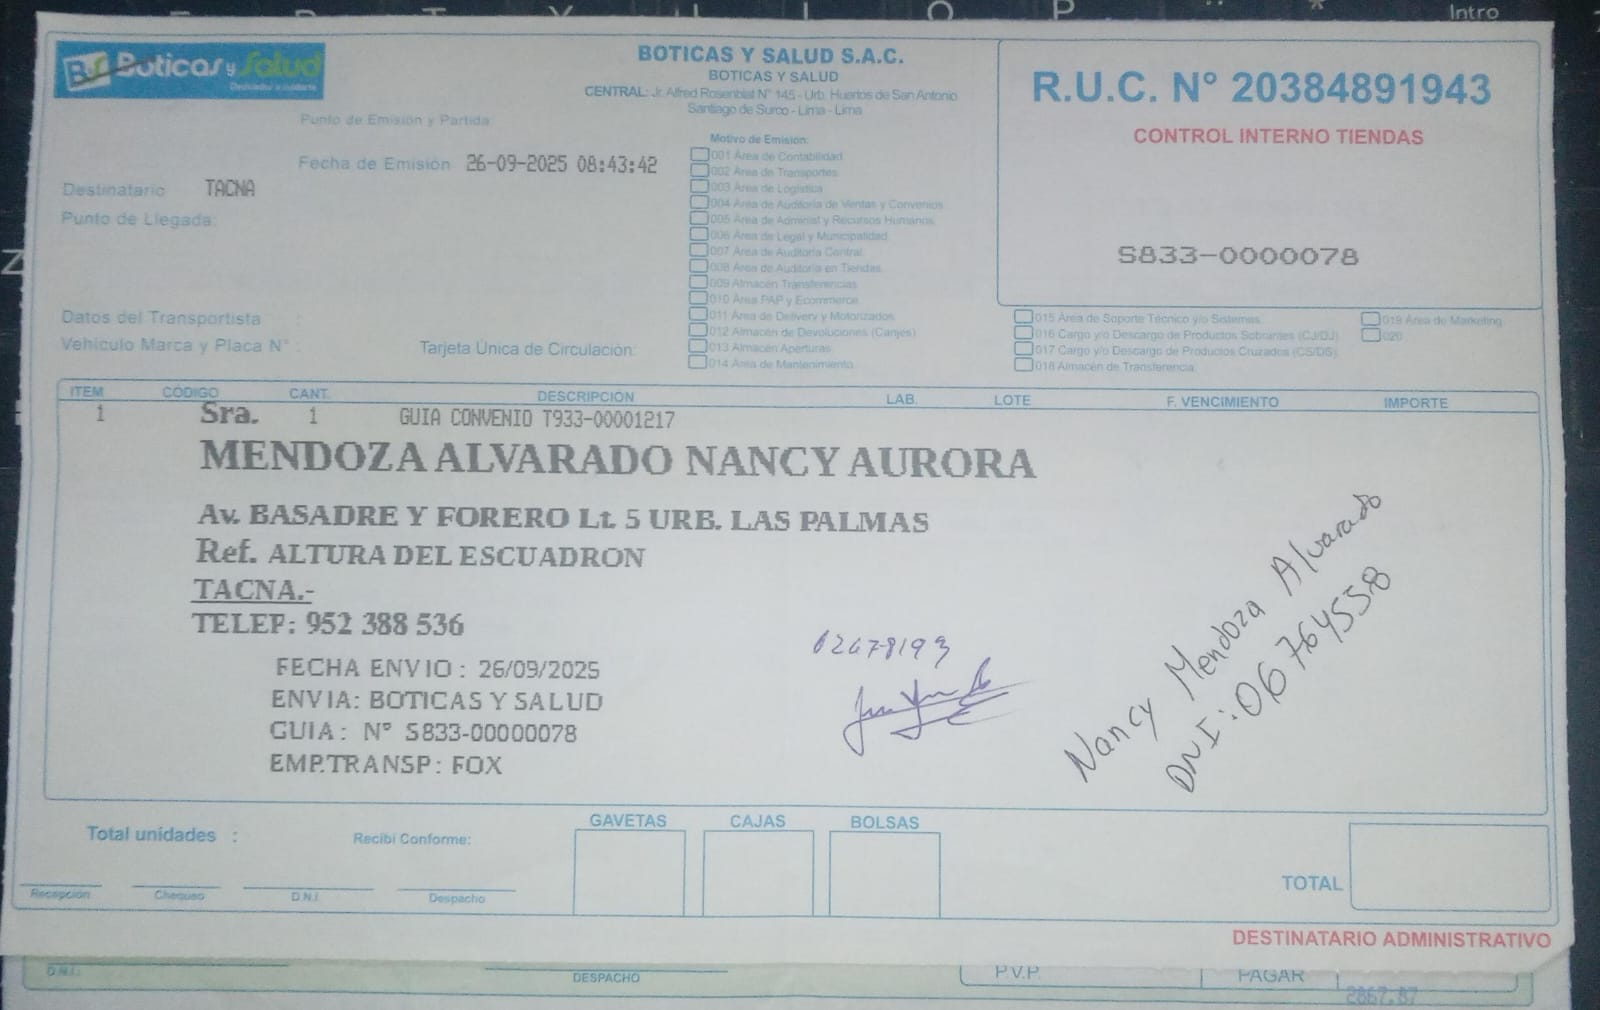 Intro
Boticas y Salud
BOTICAS Y SALUD S.A.C.
BOTICAS Y SALUD
CENTRAL: Jr. Alfred Rosenblat N° 145 - Urb. Huertos de San Antonio
Santiago de Surco - Lima - Lima
R.U.C. N° 20384891943
CONTROL INTERNO TIENDAS
S833-0000078
Punto de Emisión y Partida:
Fecha de Emisión 26-09-2025 08:43:42
Destinatario TACNA
Punto de Llegada:
Motivo de Emisión:
001 Área de Contabilidad
002 Área de Transportes
003 Área de Logística
004 Área de Auditoría de Ventas y Convenios
005 Área de Administ y Recursos Humanos
006 Área de Legal y Municipalidad
007 Área de Auditoría Central
008 Área de Auditoría en Tiendas
009 Almacén Transferencias
010 Área PAP y Ecommerce
011 Área de Delivery y Motorizados
012 Almacén de Devoluciones (Canjes)
013 Almacén Aperturas
014 Área de Mantenimiento
015 Área de Soporte Técnico y/o Sistemas
016 Cargo y/o Descargo de Productos Sobrantes (CJ/DJ)
017 Cargo y/o Descargo de Productos Cruzados (CS/DS)
018 Almacén de Transferencia
019 Área de Marketing
020
Datos del Transportista :
Vehículo Marca y Placa N° :
Tarjeta Única de Circulación:
ITEM CÓDIGO CANT. DESCRIPCIÓN LAB. LOTE F. VENCIMIENTO IMPORTE
1 Sra. 1 GUIA CONVENIO T933-00001217
MENDOZA ALVARADO NANCY AURORA
Av. BASADRE Y FORERO Lt. 5 URB. LAS PALMAS
Ref. ALTURA DEL ESCUADRON
TACNA.-
TELEF: 952 388 536
FECHA ENVIO : 26/09/2025
ENVIA: BOTICAS Y SALUD
GUIA : N° S833-00000078
EMP.TRANSP: FOX
Nancy Mendoza Alvarado
DNI: 06764558
Total unidades :
Recibí Conforme:
GAVETAS CAJAS BOLSAS
TOTAL
Recepción Chequeo D.N.I. Despacho
DESTINATARIO ADMINISTRATIVO
D.N.I.:
DESPACHO
P.V.P.
PAGAR
2867.87